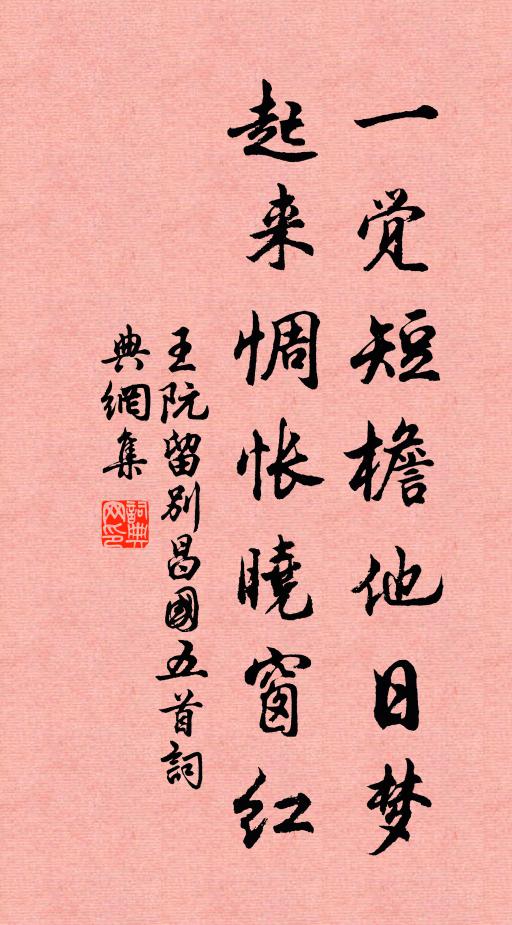 一觉短檐他日梦
起来惆怅曉窗红
王阮留别昌國五首詞
典網集
詞典网印